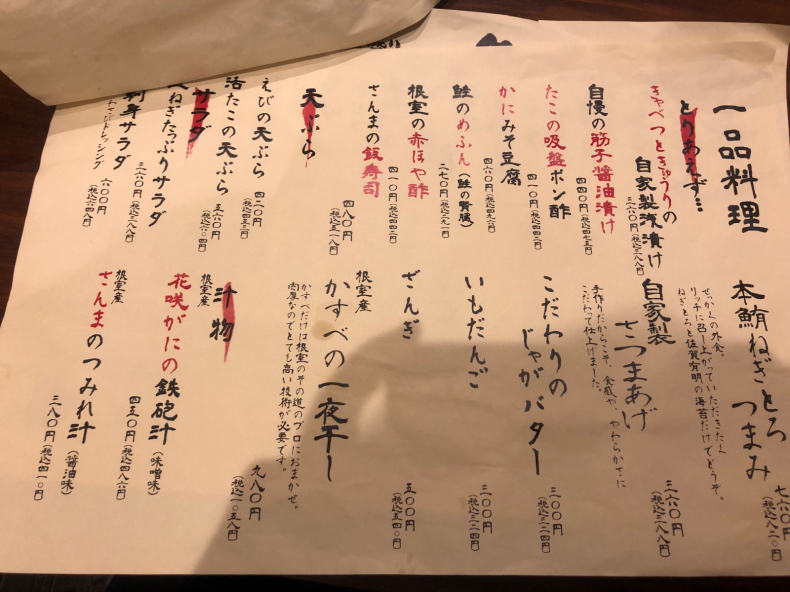 一品料理
とりあえず…
きゃべつときゅうりの
自家製浅漬け
三六〇円
(税込三八八円)
自慢の筋子醤油漬け
四四〇円
(税込四七五円)
たこの吸盤ポン酢
四一〇円
(税込四四二円)
かにみそ豆腐
四六〇円
(税込四九六円)
鮭のめふん(鮭の腎臓)
二七〇円(税込二九一円)
根室の赤ほや酢
四一〇円
(税込四四二円)
さんまの飯寿司
四八〇円
(税込五一八円)
天ぷら
えびの天ぷら
四二〇円
(税込四五三円)
活たこの天ぷら
五六〇円
(税込六〇四円)
サラダ
ねぎたっぷりサラダ
三六〇円
(税込三八八円)
刺身サラダ
わさびドレッシング
六〇〇円
(税込六四八円)
本鮪ねぎとろ
つまみ
七六〇円
(税込八二〇円)
せっかくの外食、
リッチに召し上がっていただきたく
ねぎとろと佐賀有明の海苔だけでどうぞ。
自家製
さつまあげ
三六〇円
(税込三八八円)
手作りだからこそ、食感や、やわらかさに
こだわって仕上げました。
こだわりの
じゃがバター
三〇〇円
(税込三二四円)
いもだんご
三〇〇円
(税込三二四円)
ざんぎ
五〇〇円
(税込五四〇円)
根室産
かすべの一夜干し
かすべだけは根室のその道のプロにおまかせ。
肉厚なのでとても高い技術が必要です。
九八〇円
(税込一〇五八円)
汁物
根室産
花咲がにの鉄砲汁(味噌味)
四五〇円(税込四八六円)
根室産
さんまのつみれ汁(醤油味)
三八〇円(税込四一〇円)